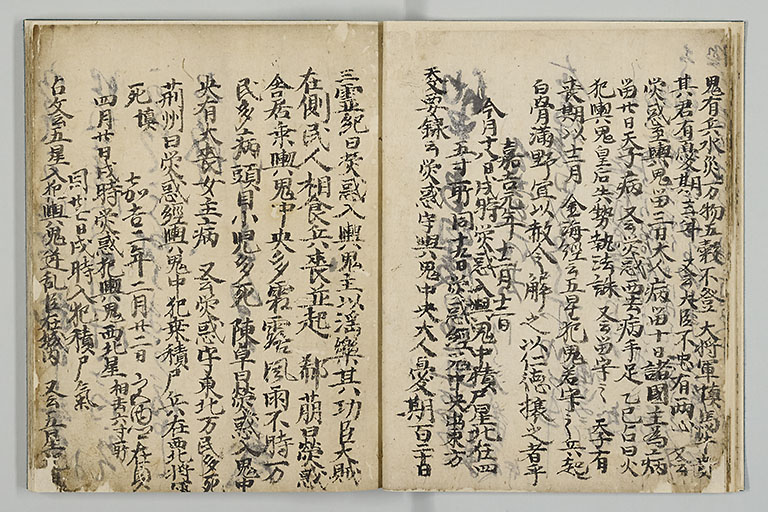 鬼有兵水災万物五穀不登 大将軍慎
其君有憂期三年 大臣不忠有両心
熒惑至輿鬼留二日大人病留十日諸国主為病
留廿日天子病 又云熒惑西去病手足 乙巳占曰火
犯輿鬼皇后失勢執法誅 天子有
喪期以十二月 金海経云五星犯鬼 兵起
白骨満野宜以赦令解之以仁徳攘之者平
嘉吉元年十二月十二日
今月十八日戌時熒惑入輿鬼中積尸星北在四
五寸所同十五日熒惑経鬼中央出東方
天要録云熒惑守輿鬼中央大人憂期百二十日
三霊紀曰熒惑入輿鬼主以淫楽其以功臣大賊
在側民人相食兵喪並起 郗萌曰熒惑
舎居乗輿鬼中央多霜露風雨不時万
民多病頭目小児多死 陳卓曰熒惑入鬼中
央有大喪女主病 又云熒惑守東北万民多死
荊州曰熒惑経輿鬼中犯乗積尸兵在西北将軍
死慎
嘉吉二年二月廿二日
四月廿日戌時熒惑犯輿鬼西北星 相去六寸所
同廿二日戌時入犯積尸気
占文云五星入犯輿鬼 乱臣在城内 又云五星